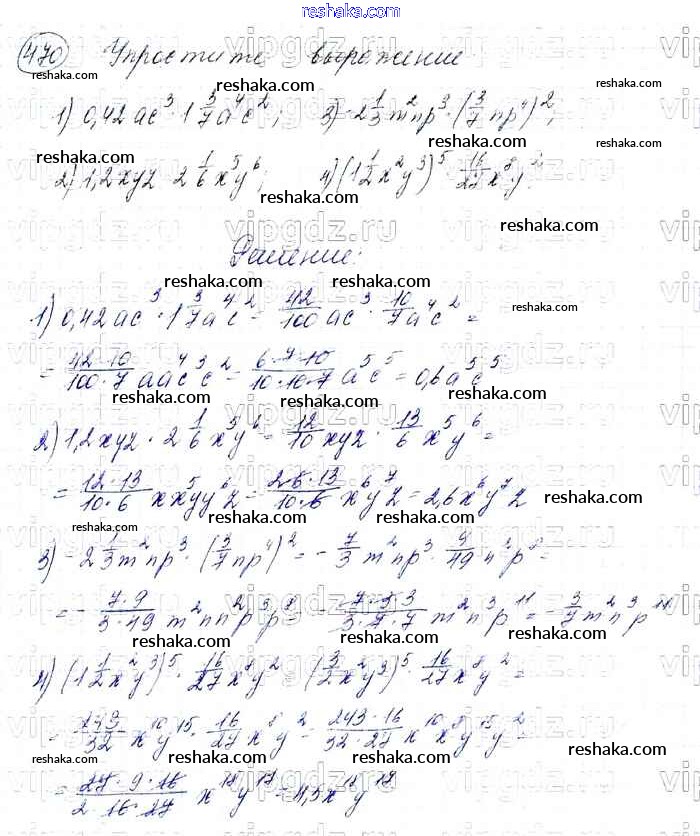 reshaka.com
470 Упростите выражение
1) 0,42ac³ · 1 3/7 a⁴c²; 3) -2 1/3 m²np³ · (3/7 np⁴)²;
2) 1,2xyz · 2 1/6 x⁵y⁶; 4) (1 1/2 x²y³)⁵ · 16/27 x⁸y².
Решение:
1) 0,42ac³ · 1 3/7 a⁴c² = 42/100 ac³ · 10/7 a⁴c² =
= 42·10/100·7 aa⁴c³c² = 6·7·10/10·10·7 a⁵c⁵ = 0,6a⁵c⁵
2) 1,2xyz · 2 1/6 x⁵y⁶ = 12/10 xyz · 13/6 x⁵y⁶ =
= 12·13/10·6 xx⁵yy⁶z = 2·6·13/10·6 x⁶y⁷z = 2,6x⁶y⁷z
3) -2 1/3 m²np³ · (3/7 np⁴)² = -7/3 m²np³ · 9/49 n²p⁸ =
= -7·9/3·49 m²nn²p³p⁸ = -7·3·3/3·7·7 m²n³p¹¹ = -3/7 m²n³p¹¹
4) (1 1/2 x²y³)⁵ · 16/27 x⁸y² = (3/2 x²y³)⁵ · 16/27 x⁸y² =
= 243/32 x¹⁰y¹⁵ · 16/27 x⁸y² = 243·16/32·27 x¹⁰x⁸y¹⁵y² =
= 27·9·16/2·16·27 x¹⁸y¹⁷ = 4,5x¹⁸y¹⁷